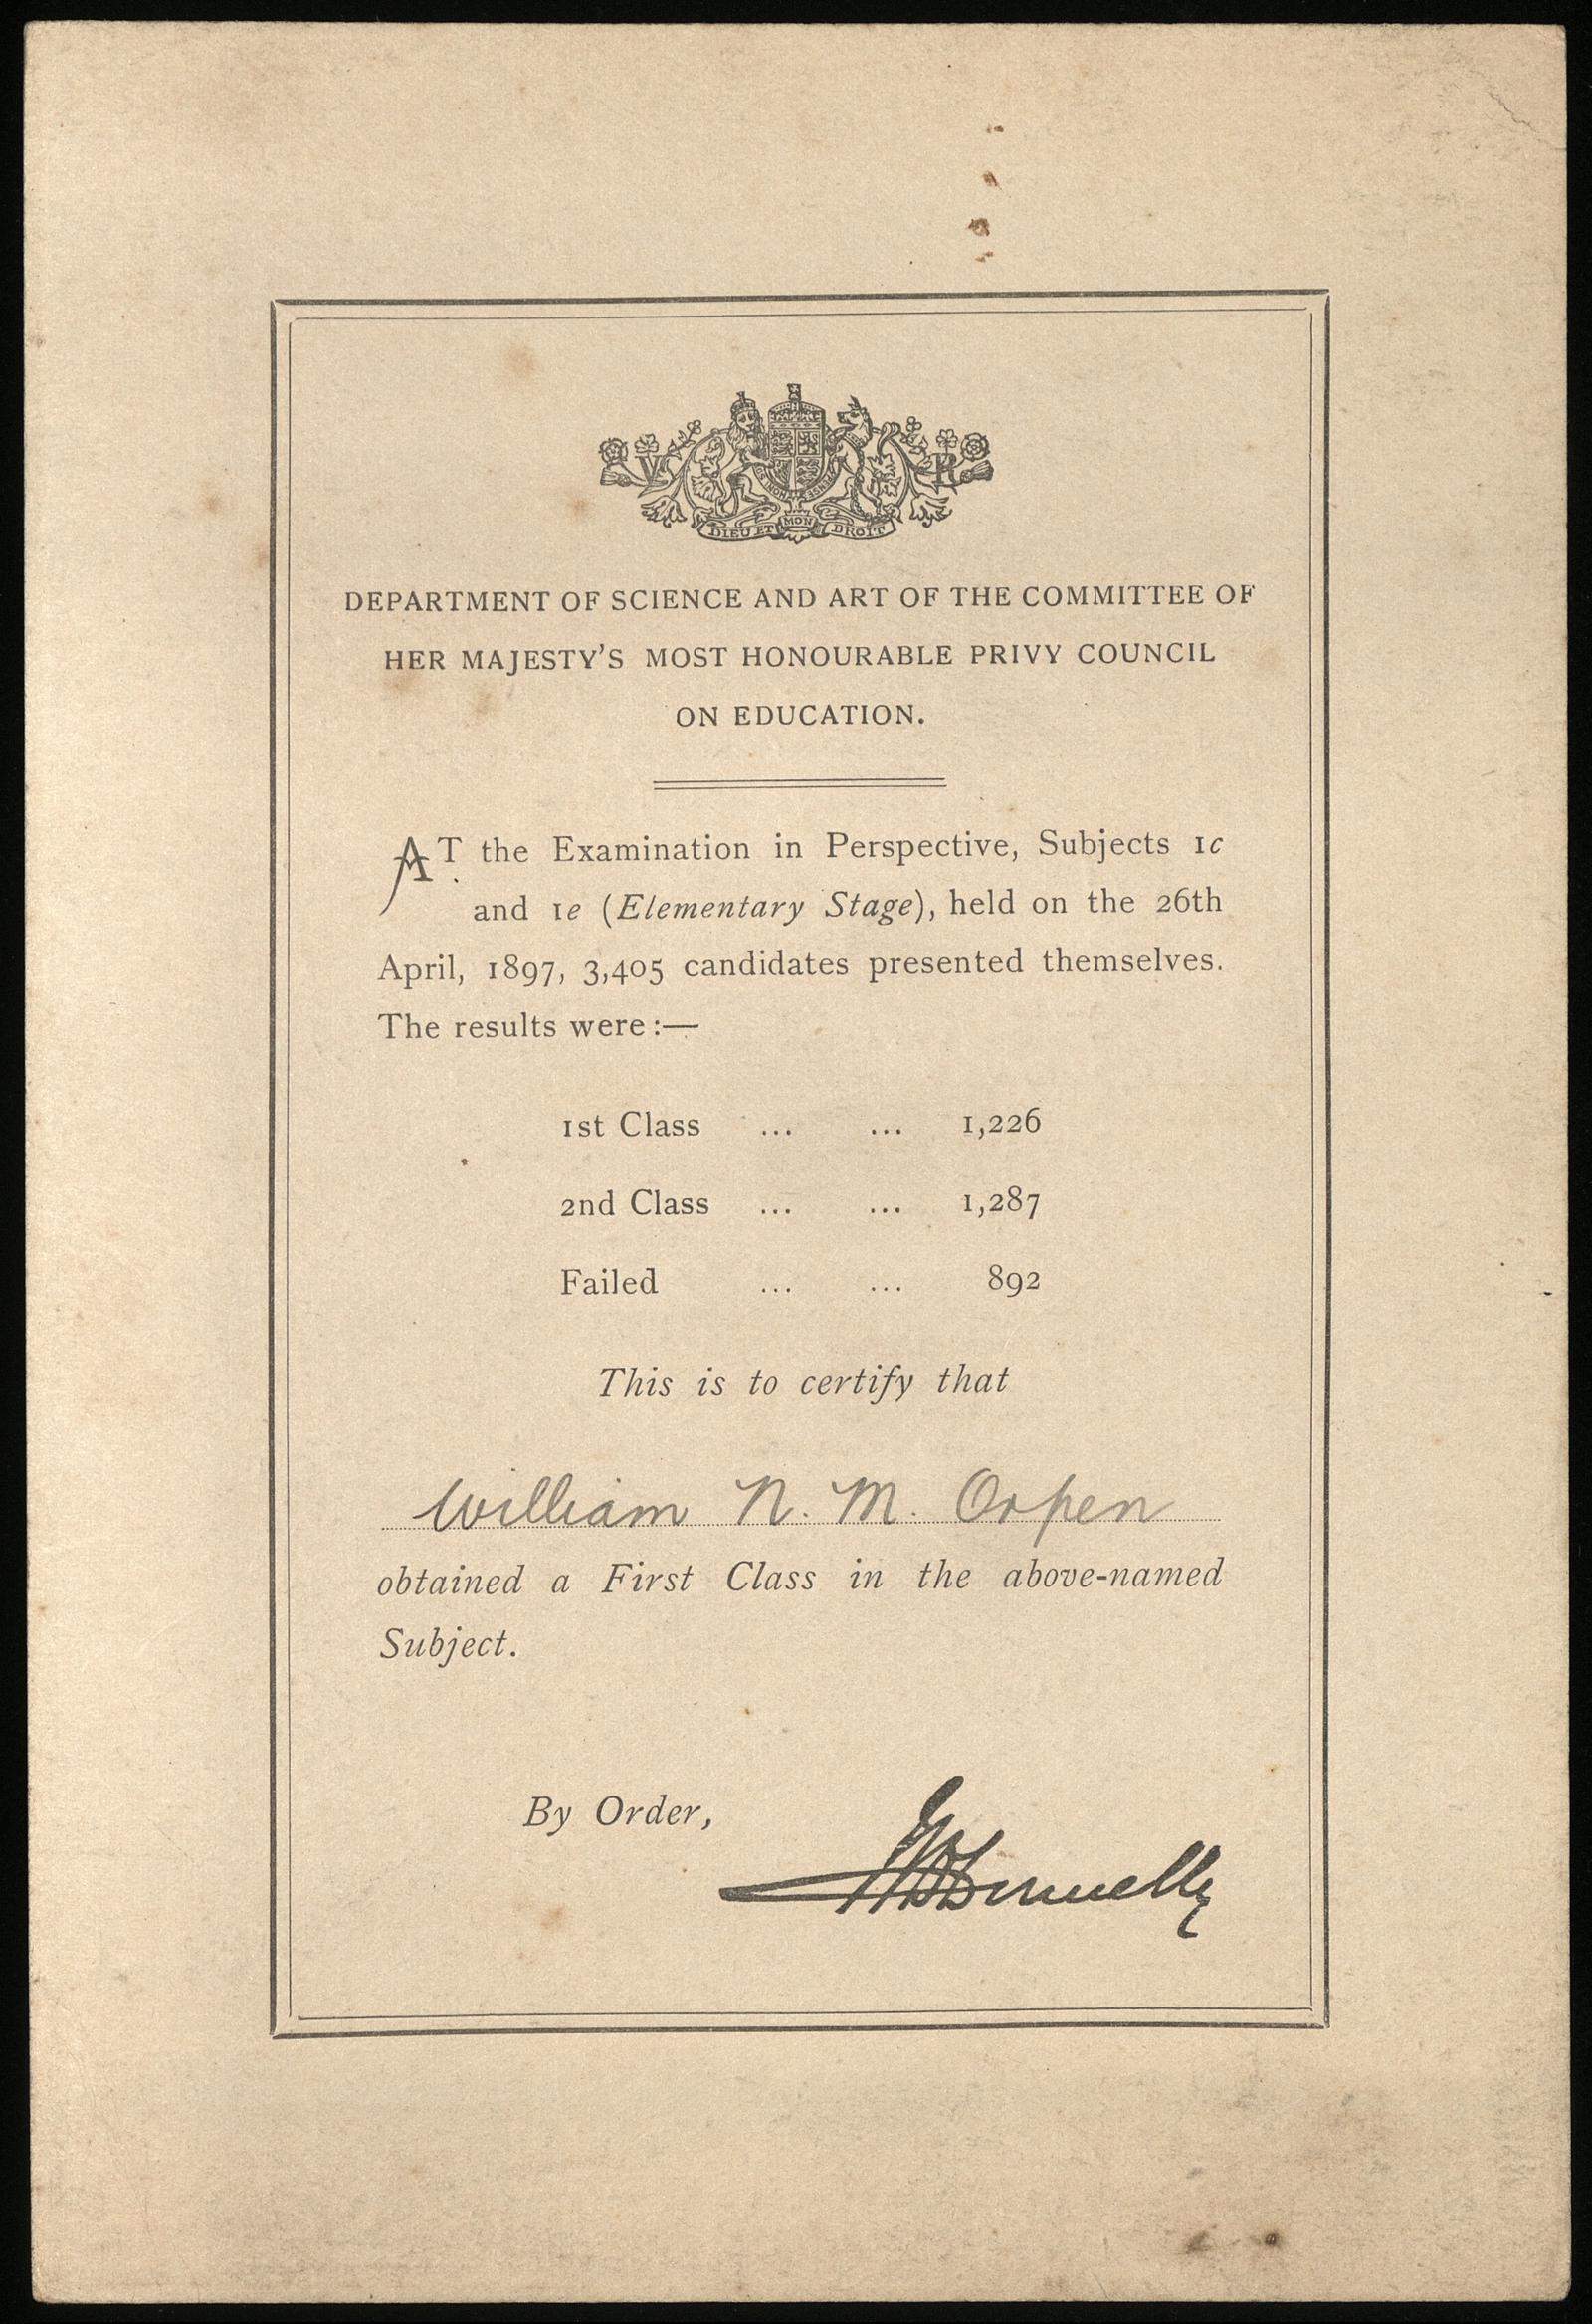 V R
HONI
DIEU ET MON DROIT
DEPARTMENT OF SCIENCE AND ART OF THE COMMITTEE OF
HER MAJESTY'S MOST HONOURABLE PRIVY COUNCIL
ON EDUCATION.
AT the Examination in Perspective, Subjects 1c
and 1e (Elementary Stage), held on the 26th
April, 1897, 3,405 candidates presented themselves.
The results were :—
1st Class ... ... 1,226
2nd Class ... ... 1,287
Failed ... ... 892
This is to certify that
William N. M. Orpen
obtained a First Class in the above-named
Subject.
By Order,
Donnelly